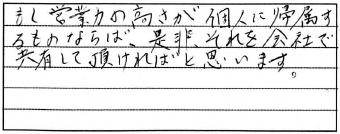 もし営業力の高さが個人に帰属す
るものならば、是非、それを会社で
共有して頂ければと思います。